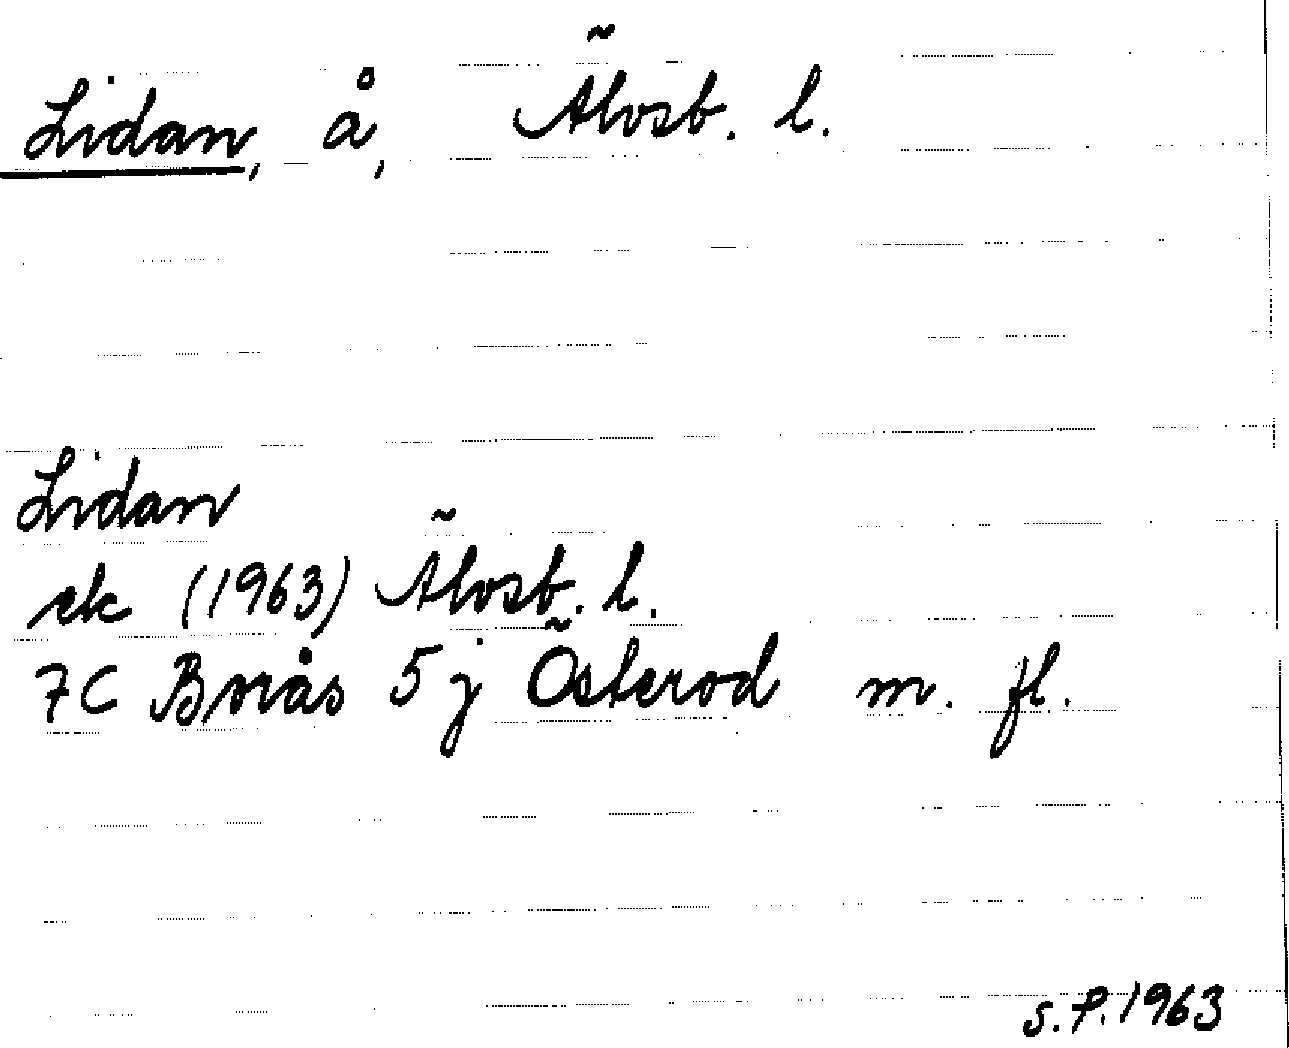 Lidan, å, Älvsb. l.
Lidan
ek (1963) Älvsb. l.
7C Borås 5j Österod m. fl.
S.P. 1963